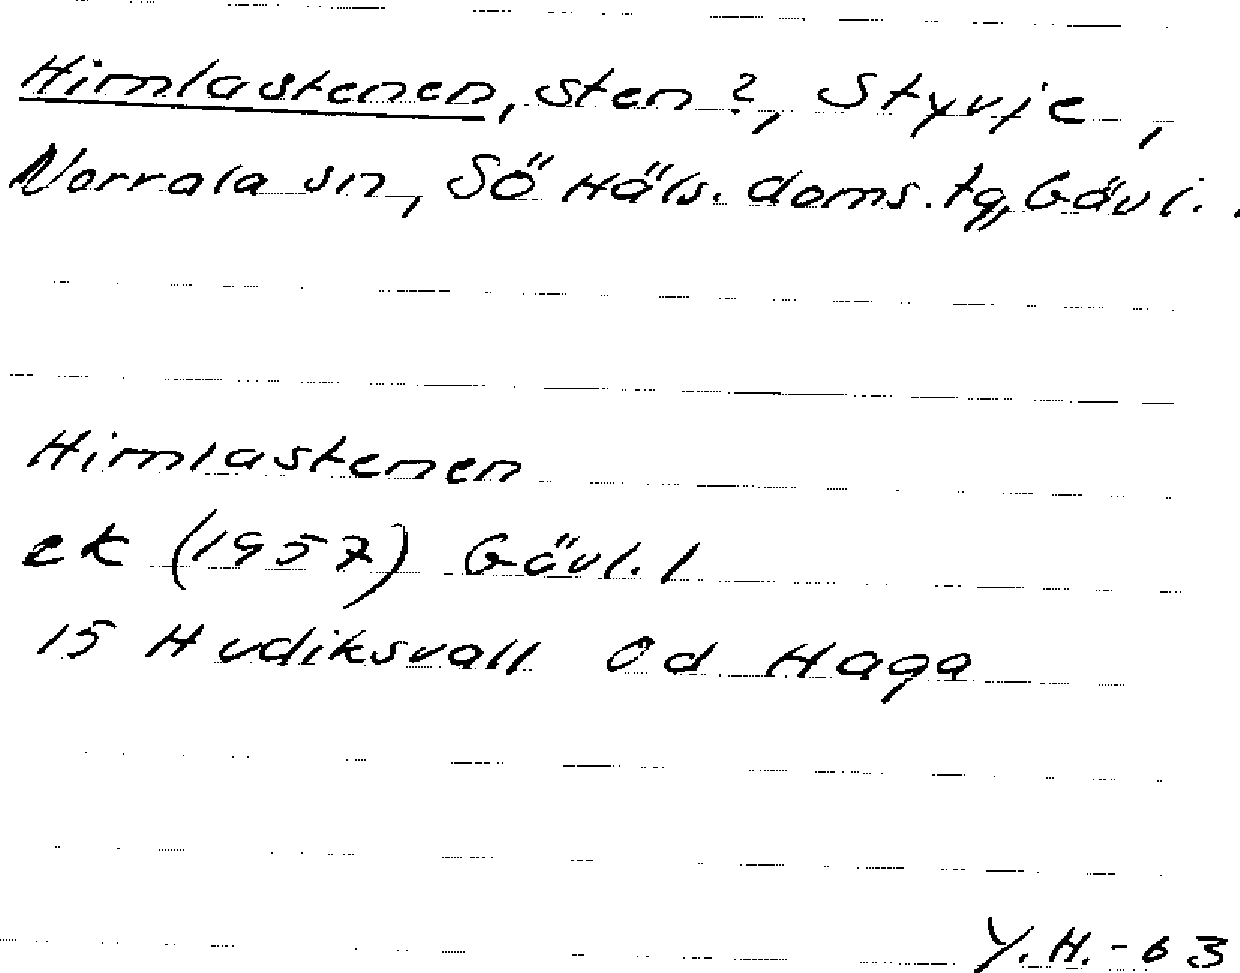 Himlastenen, sten?, Styvje,
Norrala sn, Sö Häls. doms. tg, Gävl. l.
Himlastenen
ek (1957) Gävl. l
15 Hudiksvall Od Haga
Y.H.-63